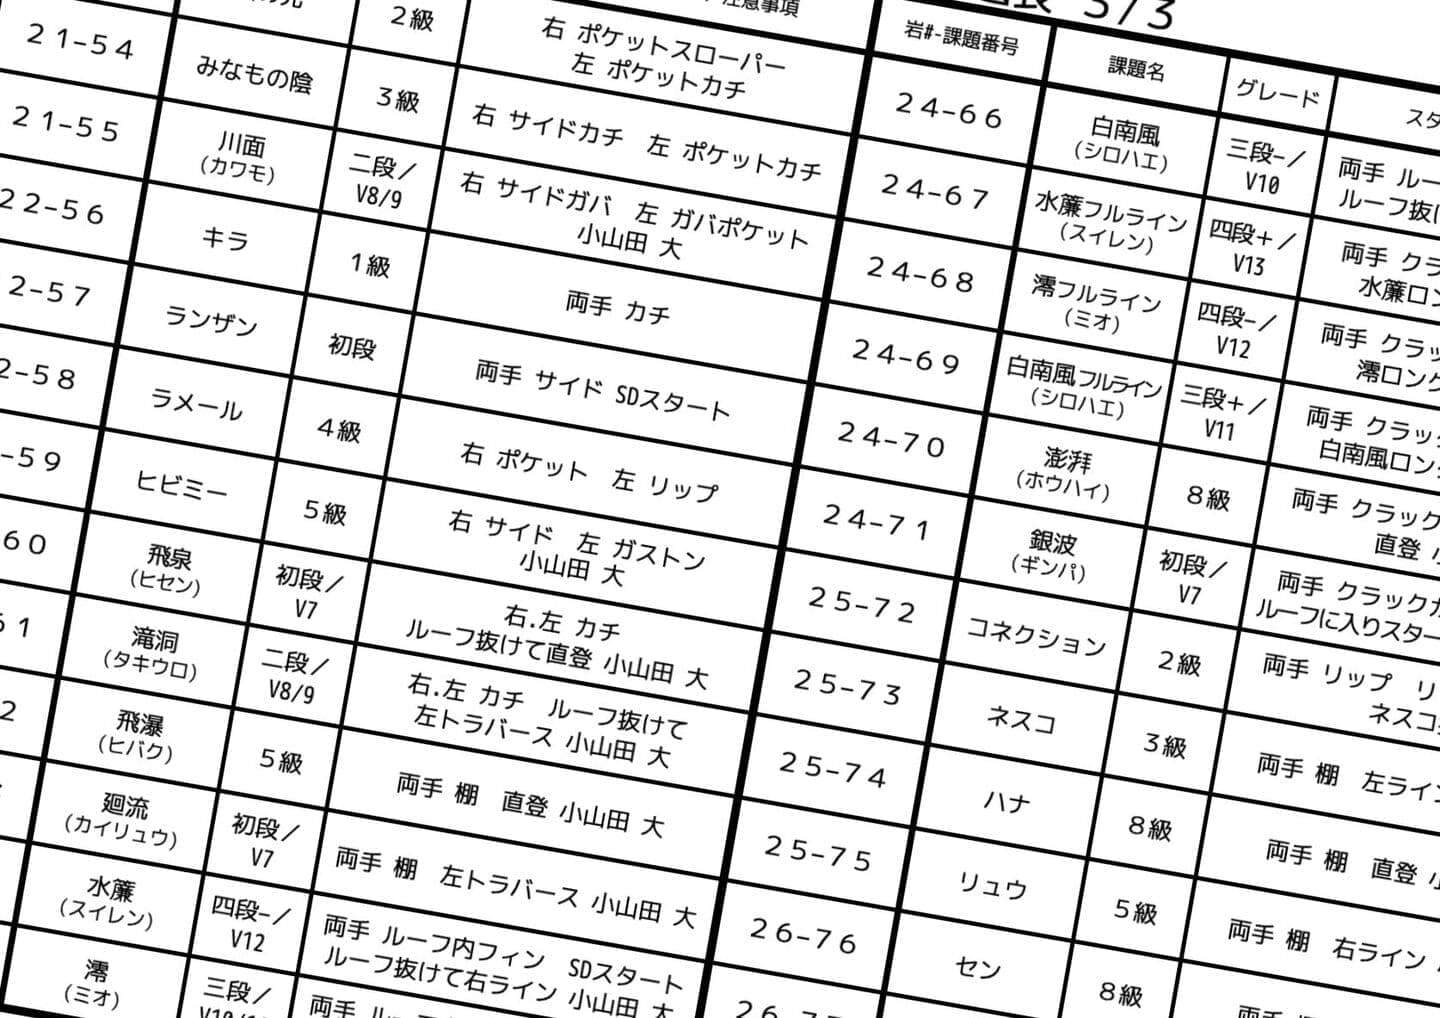 2級
右 ポケットスローパー
左 ポケットカチ
21-54
みなもの陰
3級
右 サイドカチ 左 ポケットカチ
21-55
川面
(カワモ)
二段/
V8/9
右 サイドガバ 左 ガバポケット
小山田 大
22-56
キラ
1級
両手 カチ
2-57
ランザン
初段
両手 サイド SDスタート
2-58
ラメール
4級
右 ポケット 左 リップ
-59
ヒビミー
5級
右 サイド 左 ガストン
小山田 大
60
飛泉
(ヒセン)
初段/
V7
右.左 カチ
ルーフ抜けて直登 小山田 大
61
滝洞
(タキウロ)
二段/
V8/9
右.左 カチ ルーフ抜けて
左トラバース 小山田 大
2
飛瀑
(ヒバク)
5級
両手 棚 直登 小山田 大
廻流
(カイリュウ)
初段/
V7
両手 棚 左トラバース 小山田 大
水簾
(スイレン)
四段-/
V12
両手 ルーフ内フィン SDスタート
ルーフ抜けて右ライン 小山田 大
澪
(ミオ)
三段/
両手
3/3
岩#-課題番号
課題名
グレード
スタ
24-66
白南風
(シロハエ)
三段-/
V10
両手 ルー
ルーフ抜け
24-67
水簾フルライン
(スイレン)
四段+/
V13
両手 クラ
水簾ロン
24-68
澪フルライン
(ミオ)
四段-/
V12
両手 クラッ
澪ロング
24-69
白南風フルライン
(シロハエ)
三段+/
V11
両手 クラック
白南風ロン
24-70
澎湃
(ホウハイ)
8級
両手 クラック
直登
24-71
銀波
(ギンパ)
初段/
V7
両手 クラック
ルーフに入りスター
25-72
コネクション
2級
両手 リップ リ
ネスコ
25-73
ネスコ
3級
両手 棚 左ライン
25-74
ハナ
8級
両手 棚 直登
25-75
リュウ
5級
両手 棚 右ライン
26-76
セン
8級